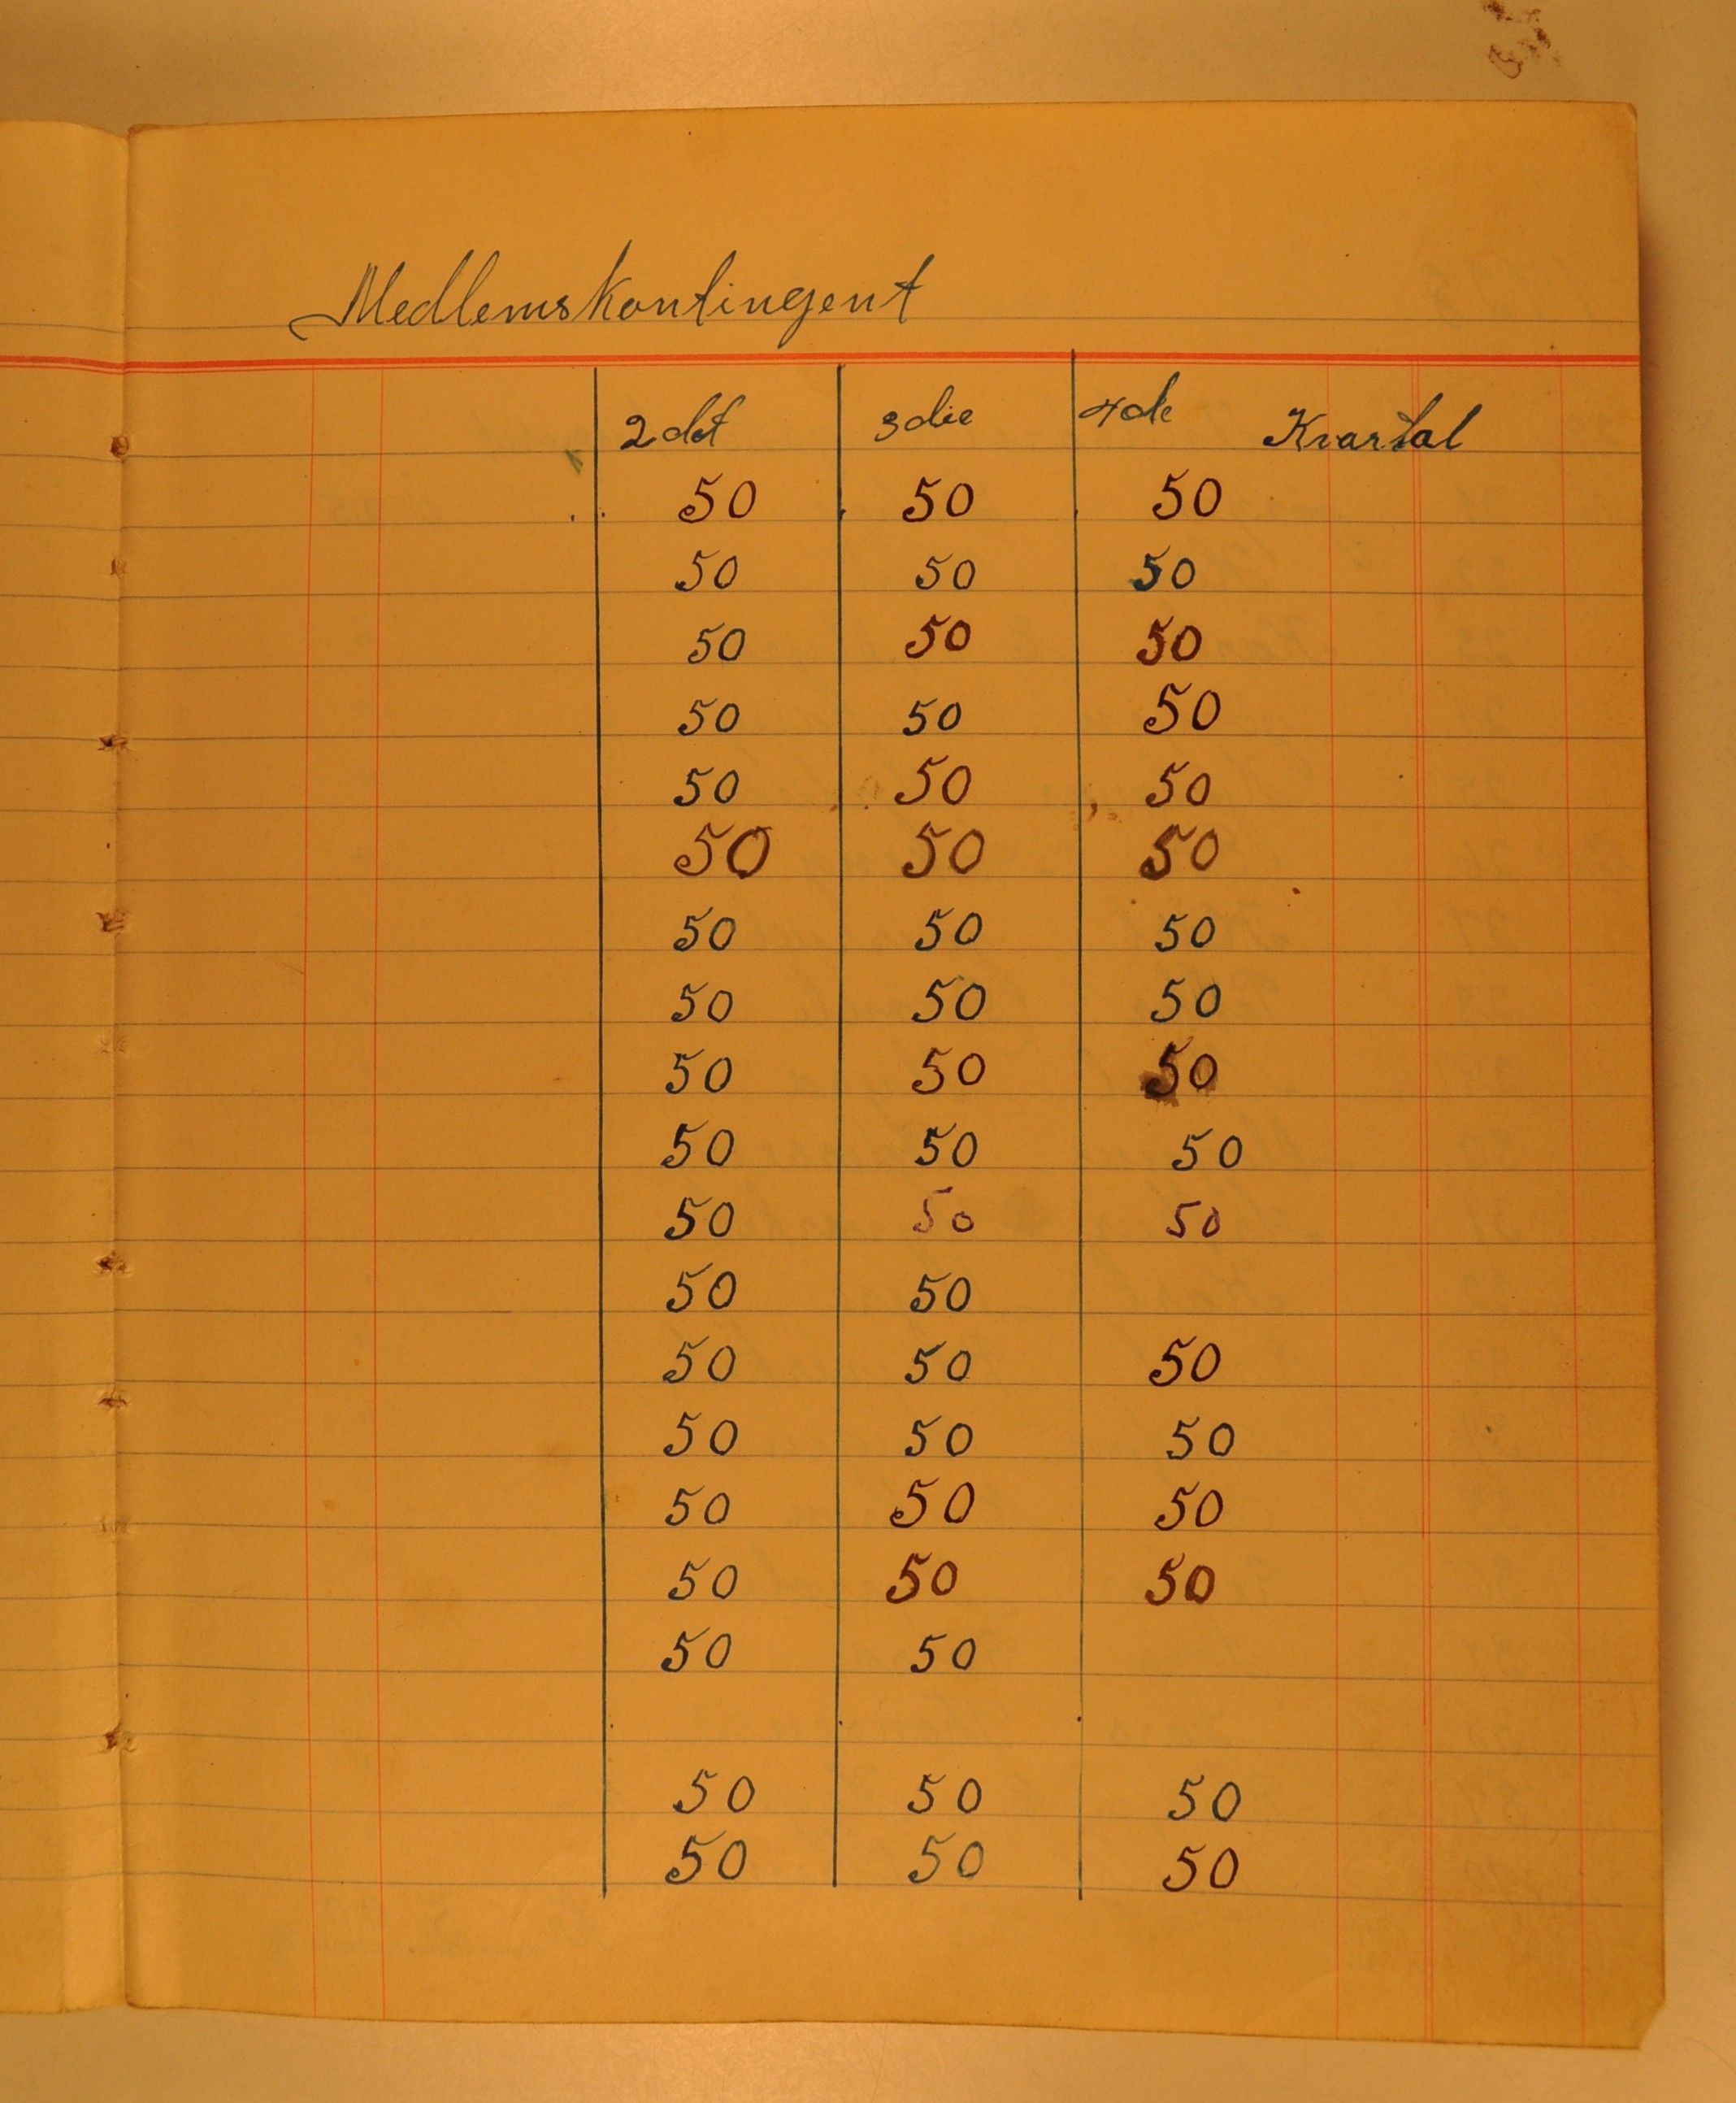 Medlemskontingent
2det 3die 4de Kvartal
50 50 50
50 50 50
50 50 50
50 50 50
50 50 50
50 50 50
50 50 50
50 50 50
50 50 50
50 50 50
50 50 50
50 50
50 50 50
50 50 50
50 50 50
50 50 50
50 50
50 50 50
50 50 50